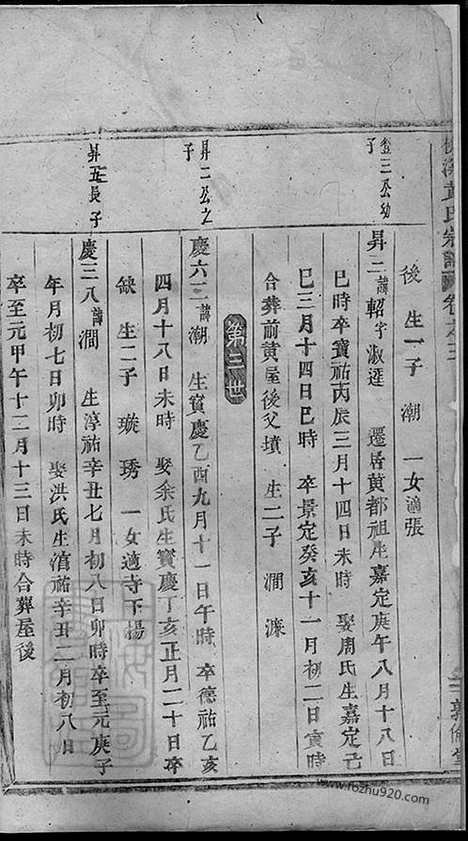 黃氏宗譜 卷之三
後 生一子 潮 一女適張
公幼子
昇二 諱 軺 字淑逵 遷居黄都祖生嘉定庚午八月十八日
巳時卒寶祐丙辰三月十四日未時 娶周氏生嘉定己
巳三月十四日巳時 卒景定癸亥十一月初二日寅時
合葬前黄屋後父墳 生二子 澗 濂
第三世
昇二公之子
慶六二 諱 潮 生寶慶乙酉九月十一日午時 卒德祐乙亥
四月十八日未時 娶余氏生寶慶丁亥正月二十日卒
缺 生二子 璇 琇 一女適寺下楊
昇五長子
慶三八 諱 澗 生淳祐辛丑七月初八日卯時卒至元庚子
年月初七日卯時 娶洪氏生淳祐辛丑二月初八日
卒至元甲午十二月十三日未時合葬屋後
www.fozhu920.com